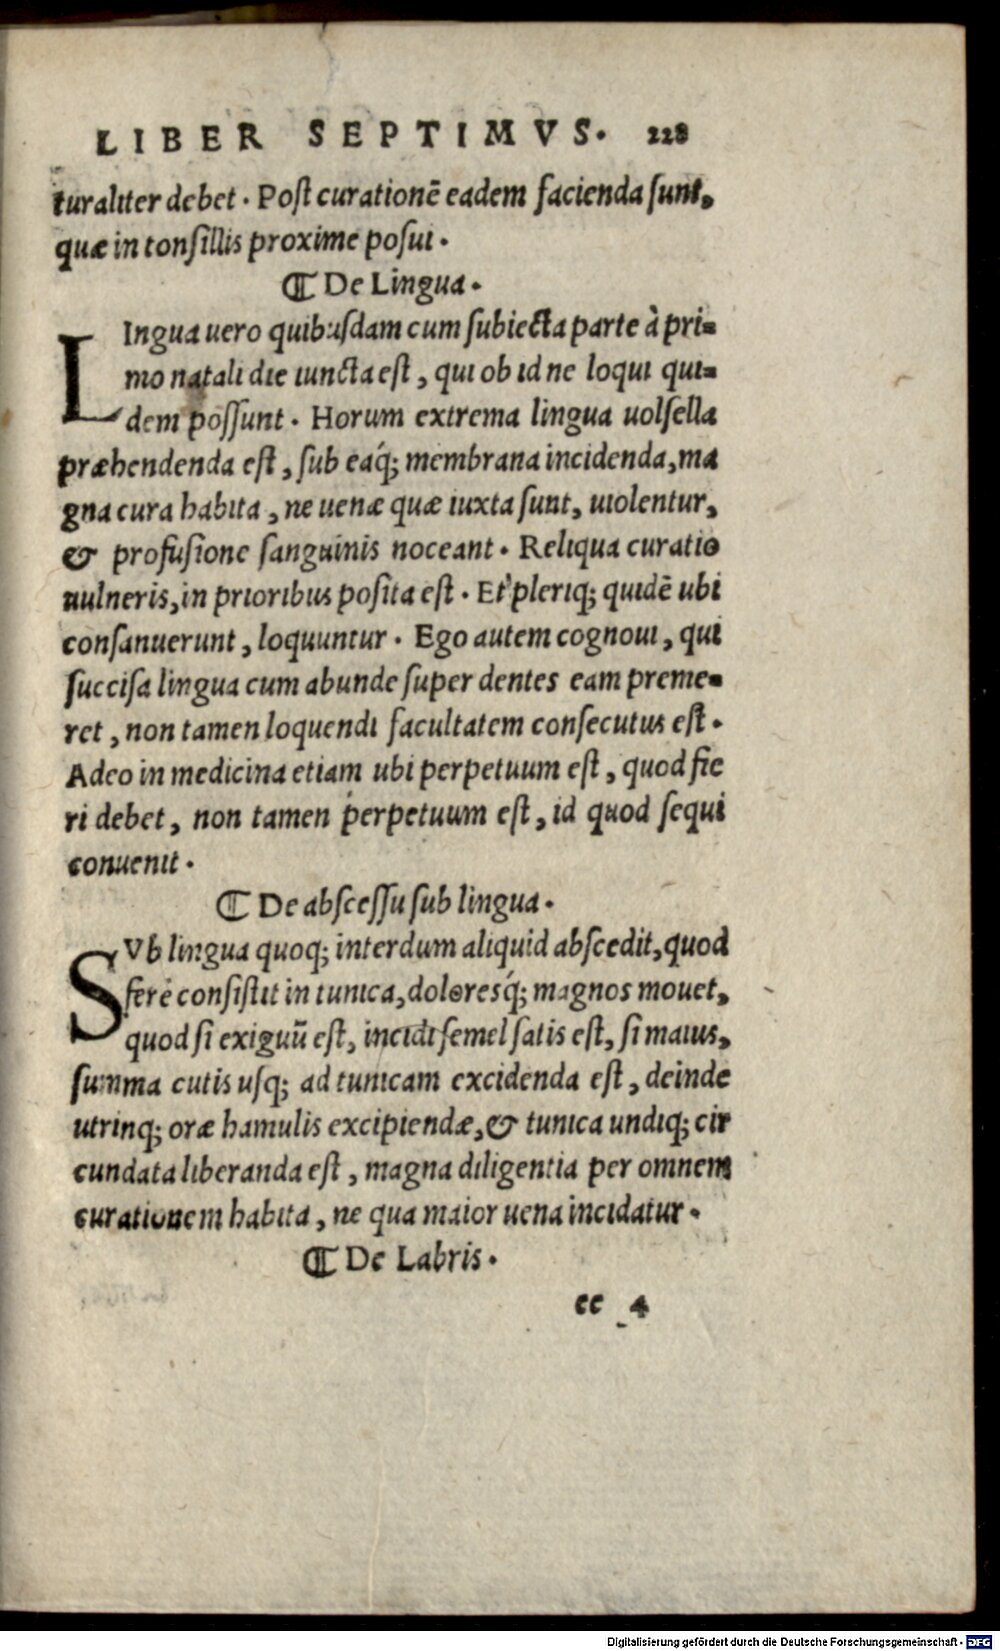 LIBER SEPTIMVS. 228
turaliter debet. Post curationē eadem facienda sunt,
quæ in tonsillis proxime posui.
¶ De Lingua.
LIngua uero quibusdam cum subiecta parte à pri-
mo natali die iuncta est, qui ob id ne loqui qui-
dem possunt. Horum extrema lingua uolsella
præhendenda est, sub eaq́; membrana incidenda, ma
gna cura habita, ne uenæ quæ iuxta sunt, uiolentur,
& profusione sanguinis noceant. Reliqua curatio
uulneris, in prioribus posita est. Et pleriq; quidē ubi
consanuerunt, loquuntur. Ego autem cognoui, qui
succisa lingua cum abunde super dentes eam preme-
ret, non tamen loquendi facultatem consecutus est.
Adeo in medicina etiam ubi perpetuum est, quod fie
ri debet, non tamen perpetuum est, id quod sequi
conuenit.
¶ De abscessu sub lingua.
SVb lingua quoq; interdum aliquid abscedit, quod
fere consistit in tunica, doloresq́; magnos mouet,
quod si exiguū est, incidi semel satis est, si maius,
summa cutis usq; ad tunicam excidenda est, deinde
utrinq; oræ hamulis excipiendæ, & tunica undiq; cir
cundata liberanda est, magna diligentia per omnem
curationem habita, ne qua maior uena incidatur.
¶ De Labris.
ee 4
Digitalisierung gefördert durch die Deutsche Forschungsgemeinschaft - DFG